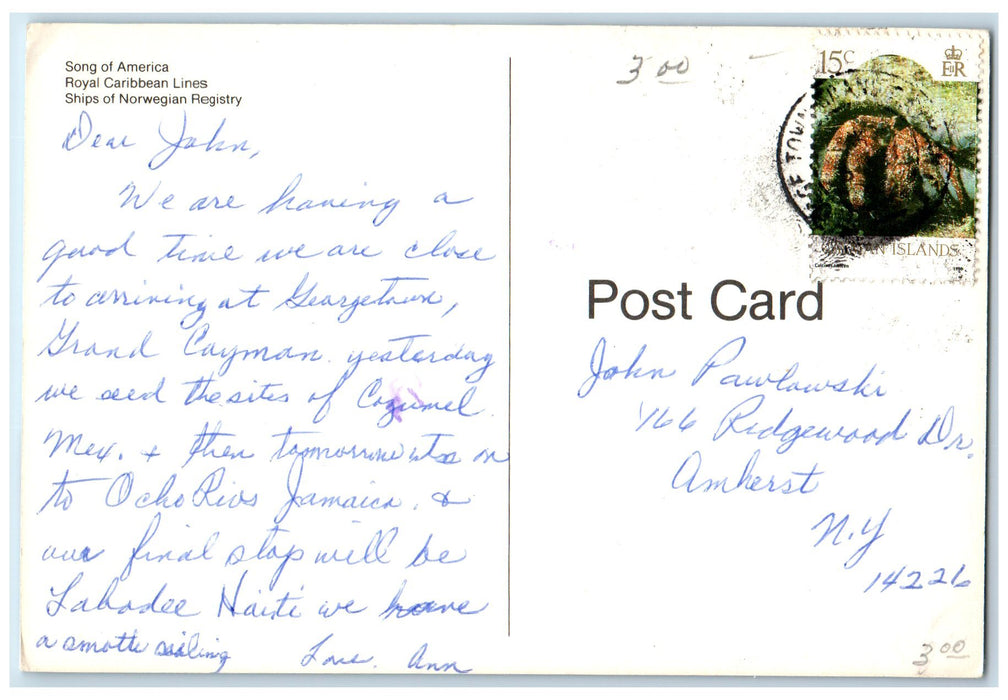 Song of America
Royal Caribbean Lines
Ships of Norwegian Registry
Dear John,
We are having a
good time we are close
to arriving at Georgetown,
Grand Cayman. yesterday
we seed the sites of Cozumel
Mex. & then tomorrow its on
to Ocho Rios Jamaica. &
our final stop will be
Labadee Haiti we have
a smotte sailing
Love. Ann
3 00
15c
ER
AN ISLANDS
GE TOWN
Post Card
John Pawlowski
166 Ridgewood Dr.
Amherst
N.Y
14226
3 00